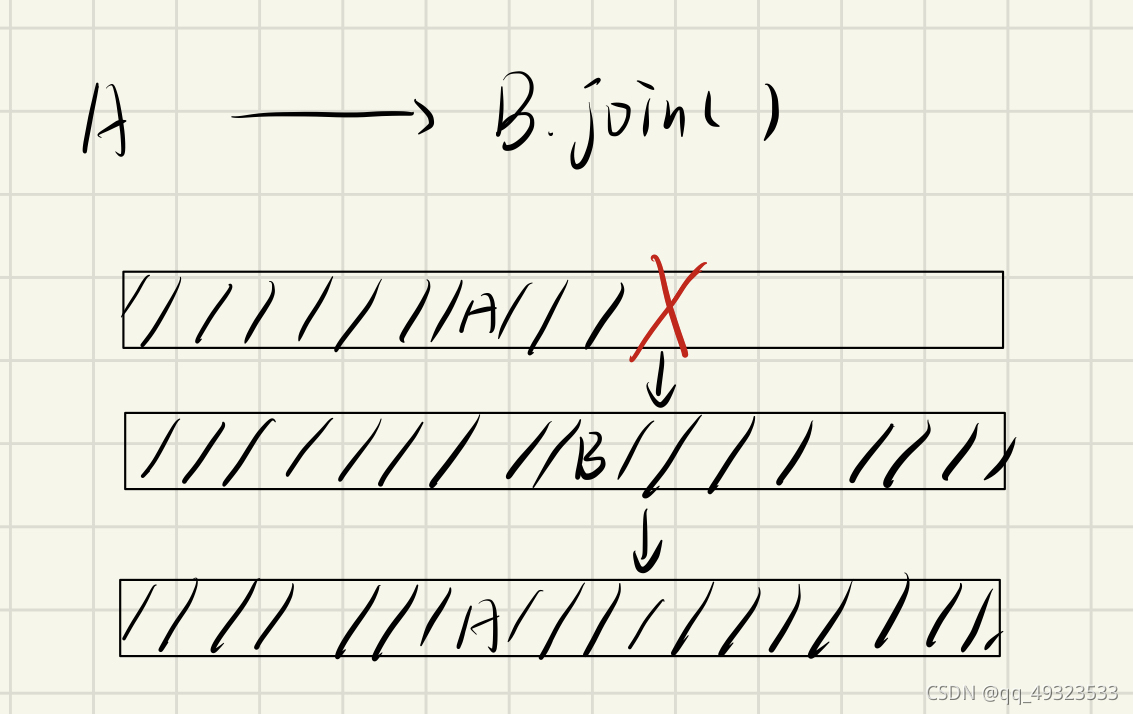 A → B.join()
A
B
A
CSDN @qq_49323533